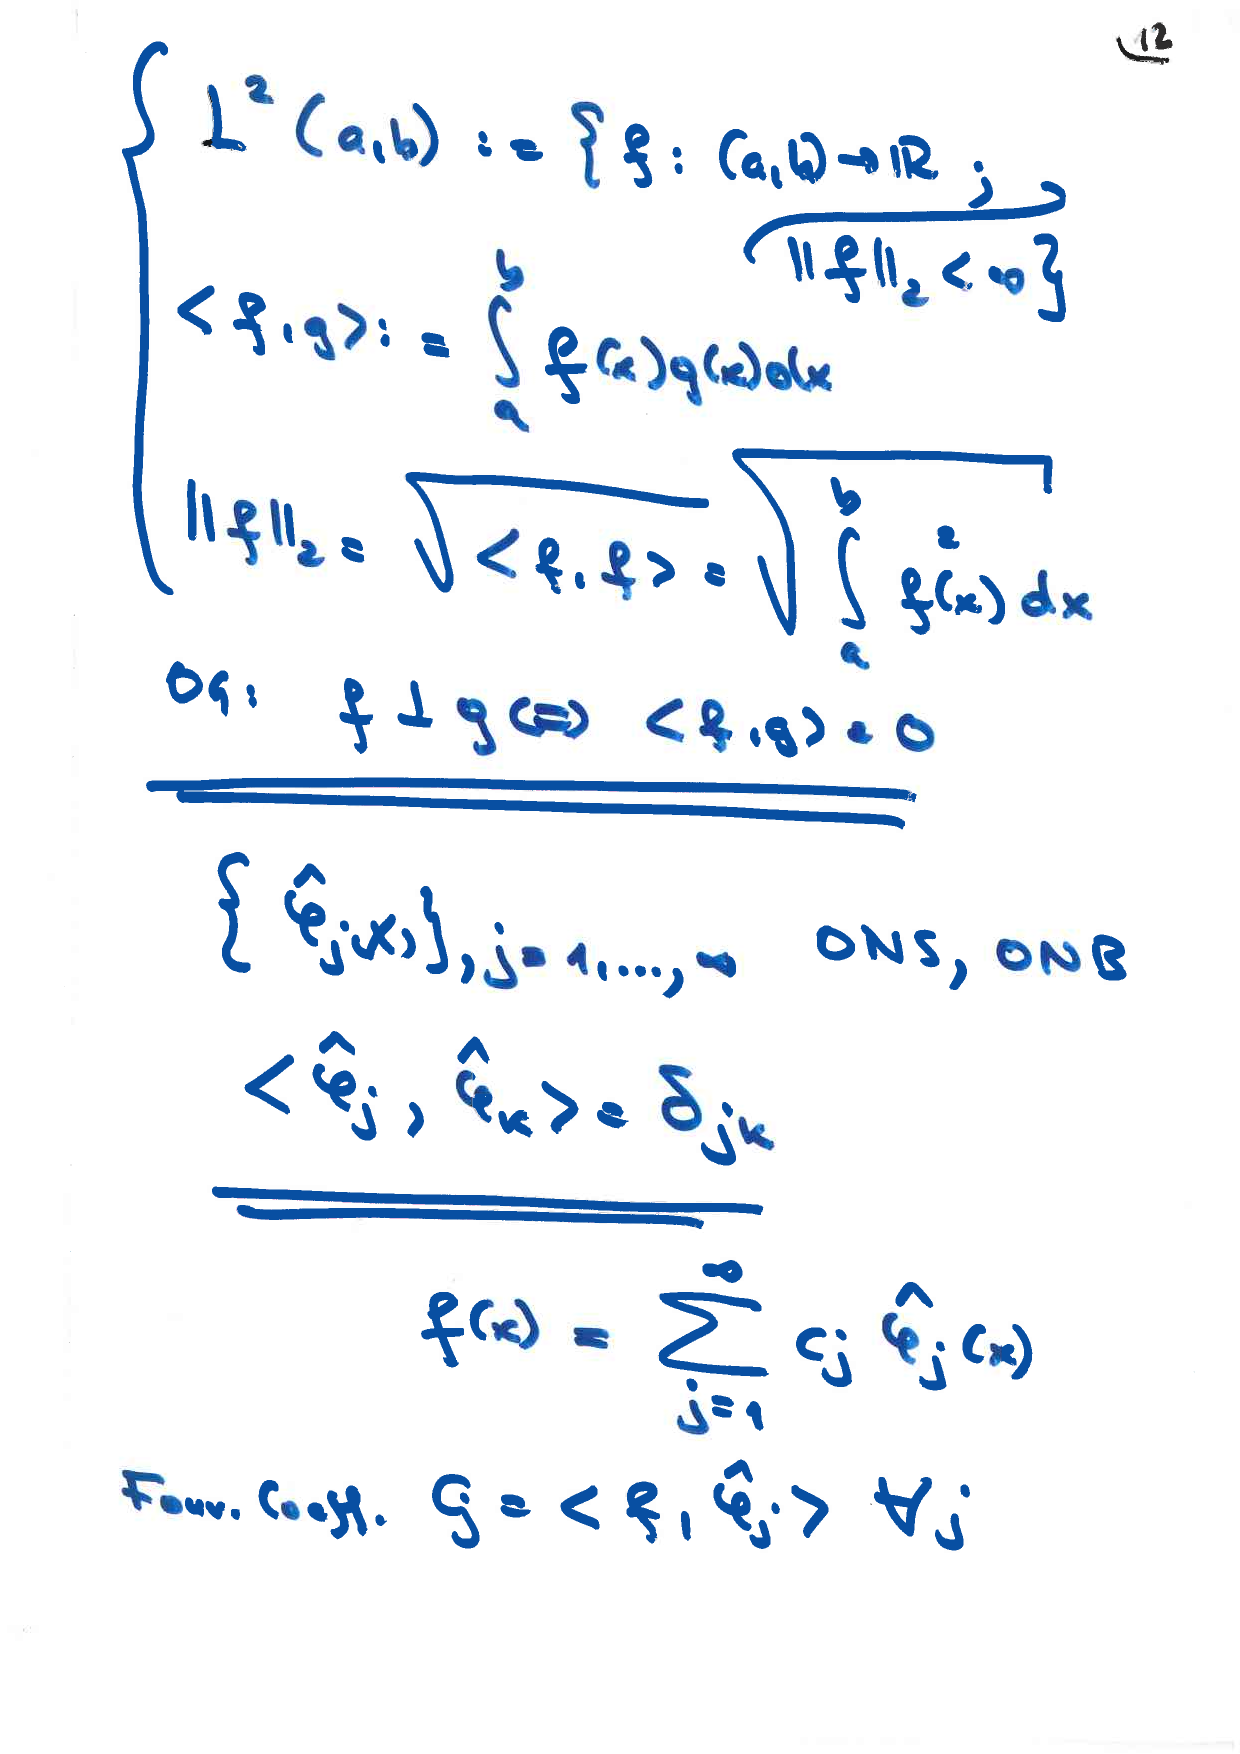 12
L²(a,b) := { f : (a,b) → ℝ ;
‖f‖₂ < ∞ }
<f,g> := ∫ₐᵇ f(x)g(x)dx
‖f‖₂ = √<f,f> = √(∫ₐᵇ f²(x) dx)
OG: f ⊥ g ⇔ <f,g> = 0
{ φ̂ⱼ(x) }, j = 1,...,∞ ONS, ONB
<φ̂ⱼ, φ̂ₖ> = δⱼₖ
f(x) = ∑_{j=1}^{∞} cⱼ φ̂ⱼ(x)
Four. Coeff. cⱼ = <f, φ̂ⱼ> ∀j